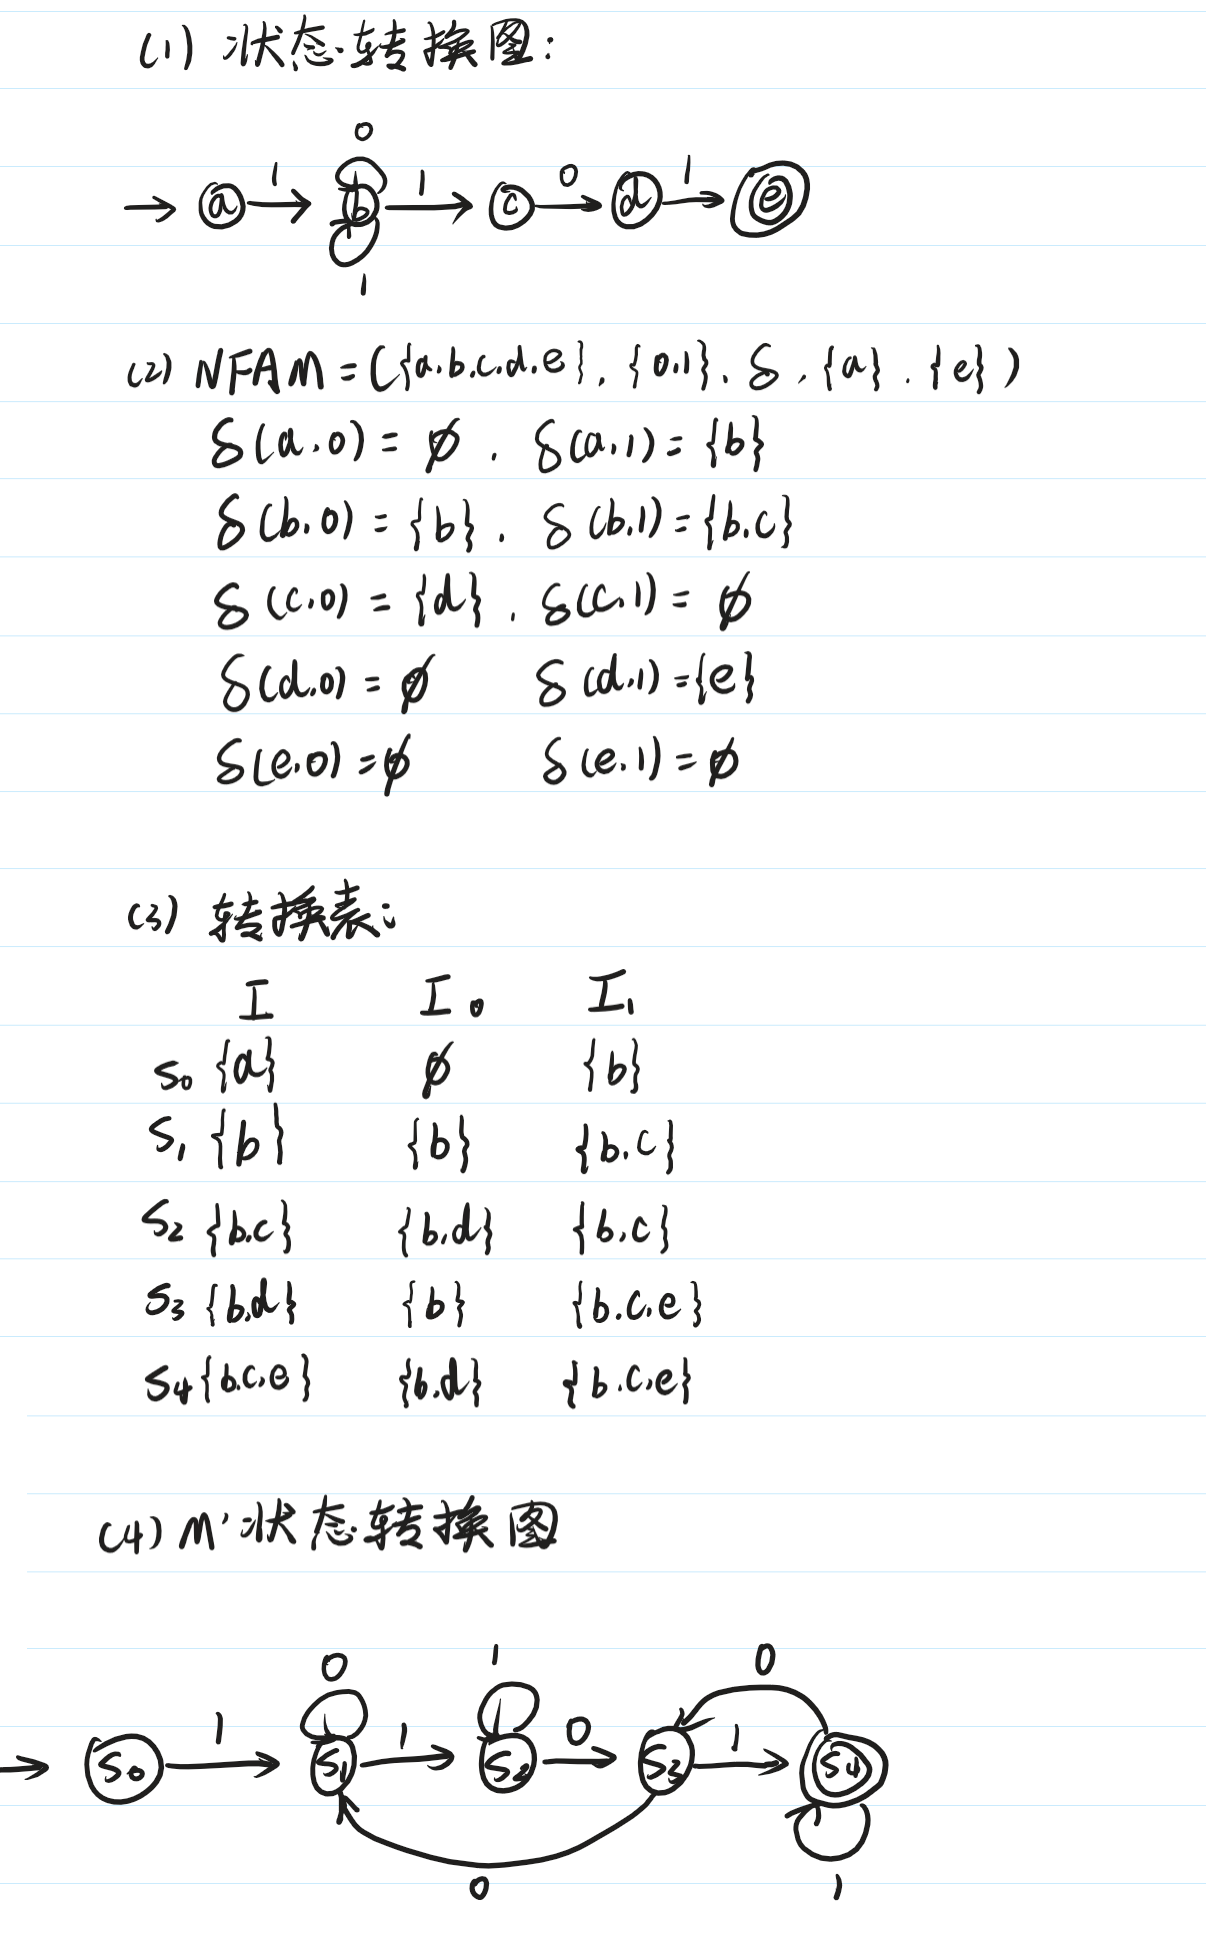 (1) 状态转换图:
0
1 1 0 1
→ a b c d e
1
(2) NFAM = ({a.b.c.d.e}, {0,1}, δ, {a}. {e})
δ(a.0) = ϕ. δ(a,1) = {b}
δ(b.0) = {b}. δ(b,1) = {b.c}
δ(c.0) = {d}. δ(c.1) = ϕ
δ(d.0) = ϕ δ(d.1) = {e}
δ(e.0) = ϕ δ(e.1) = ϕ
(3) 转换表:
I I₀ I₁
S₀ {a} ϕ {b}
S₁ {b} {b} {b.c}
S₂ {b.c} {b,d} {b,c}
S₃ {b,d} {b} {b.c.e}
S₄ {b.c.e} {b.d} {b.c,e}
(4) M' 状态转换图
0 1 0
1 1 0 1
→ S₀ S₁ S₂ S₃ S₄
0 1